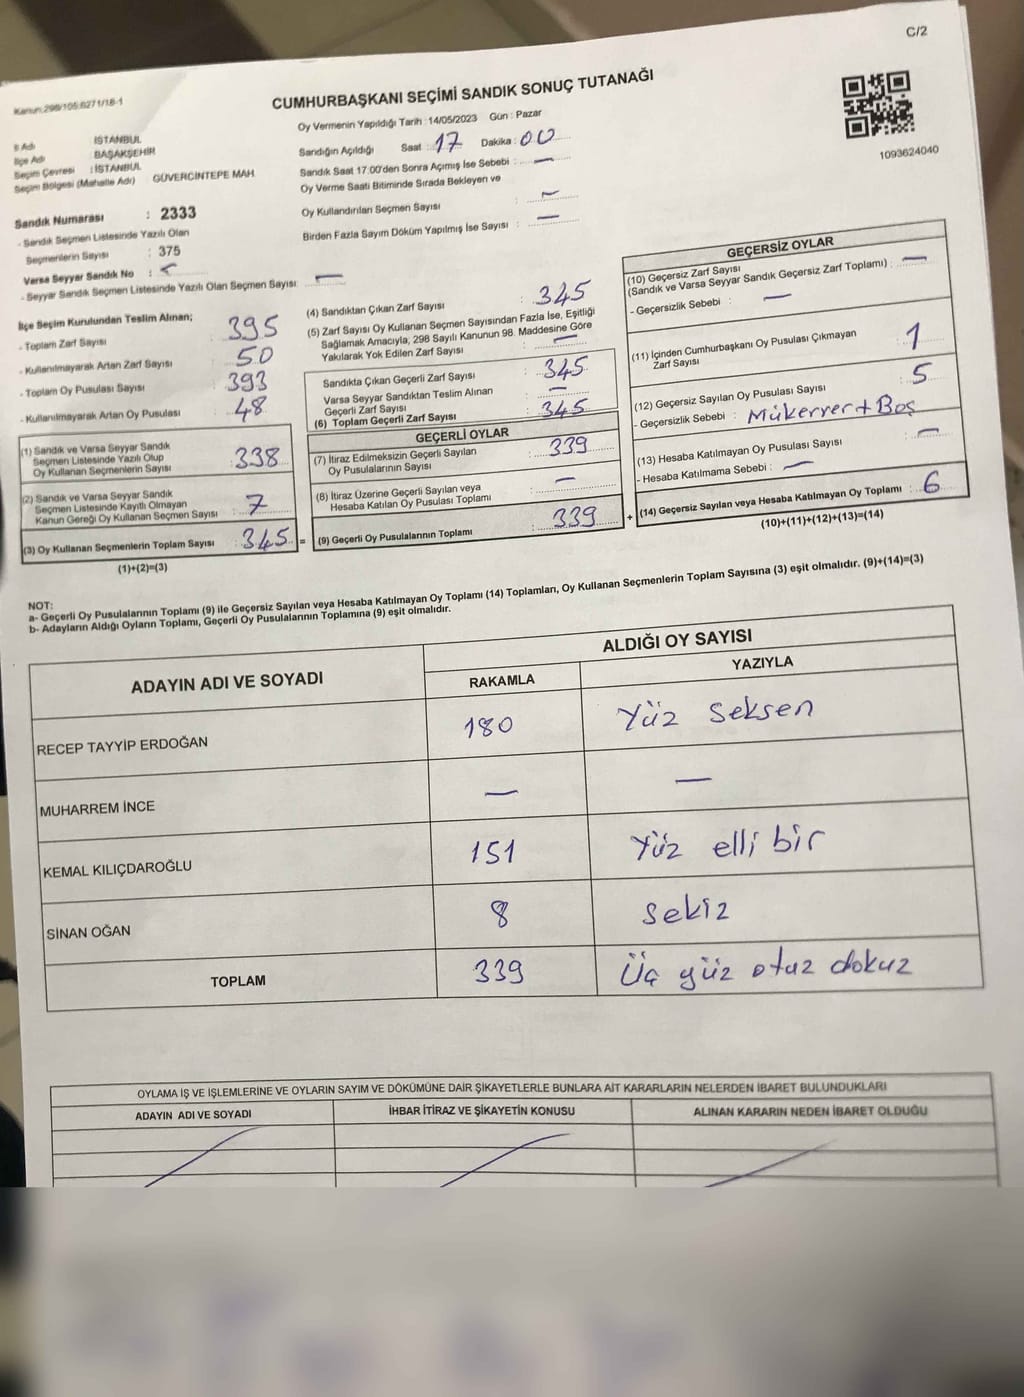 C/2
Kanun:298/105;6271/18-1
CUMHURBAŞKANI SEÇİMİ SANDIK SONUÇ TUTANAĞI
Oy Vermenin Yapıldığı Tarih :14/05/2023 Gün : Pazar
İl Adı İSTANBUL
İlçe Adı BAŞAKŞEHİR
Seçim Çevresi : İSTANBUL
Seçim Bölgesi (Mahalle Adı) GÜVERCİNTEPE MAH.
Sandığın Açıldığı Saat : 17 Dakika : 00
Sandık Saat 17.00'den Sonra Açımış İse Sebebi : —
Oy Verme Saati Bitiminde Sırada Bekleyen ve
Oy Kullandırılan Seçmen Sayısı : —
Birden Fazla Sayım Döküm Yapılmış İse Sayısı : —
1093624040
Sandık Numarası : 2333
- Sandık Seçmen Listesinde Yazılı Olan
Seçmenlerin Sayısı : 375
Varsa Seyyar Sandık No :
- Seyyar Sandık Seçmen Listesinde Yazılı Olan Seçmen Sayısı: —
İlçe Seçim Kurulundan Teslim Alınan;
- Toplam Zarf Sayısı : 395
- Kullanılmayarak Artan Zarf Sayısı : 50
- Toplam Oy Pusulası Sayısı : 393
- Kullanılmayarak Artan Oy Pusulası : 48
(1) Sandık ve Varsa Seyyar Sandık
Seçmen Listesinde Yazılı Olup
Oy Kullanan Seçmenlerin Sayısı : 338
(2) Sandık ve Varsa Seyyar Sandık
Seçmen Listesinde Kayıtlı Olmayan
Kanun Gereği Oy Kullanan Seçmen Sayısı : 7
(3) Oy Kullanan Seçmenlerin Toplam Sayısı : 345 =
(1)+(2)=(3)
(4) Sandıktan Çıkan Zarf Sayısı : 345
(5) Zarf Sayısı Oy Kullanan Seçmen Sayısından Fazla İse, Eşitliği
Sağlamak Amacıyla, 298 Sayılı Kanunun 98. Maddesine Göre
Yakılarak Yok Edilen Zarf Sayısı : —
Sandıkta Çıkan Geçerli Zarf Sayısı : 345
Varsa Seyyar Sandıktan Teslim Alınan
Geçerli Zarf Sayısı : —
(6) Toplam Geçerli Zarf Sayısı : 345
GEÇERLİ OYLAR
(7) İtiraz Edilmeksizin Geçerli Sayılan
Oy Pusulalarının Sayısı : 339
(8) İtiraz Üzerine Geçerli Sayılan veya
Hesaba Katılan Oy Pusulası Toplamı : —
(9) Geçerli Oy Pusulalarının Toplamı : 339 +
GEÇERSİZ OYLAR
(10) Geçersiz Zarf Sayısı
(Sandık ve Varsa Seyyar Sandık Geçersiz Zarf Toplamı) : —
- Geçersizlik Sebebi : —
(11) İçinden Cumhurbaşkanı Oy Pusulası Çıkmayan
Zarf Sayısı : 1
(12) Geçersiz Sayılan Oy Pusulası Sayısı : 5
- Geçersizlik Sebebi : Mükerrer + Boş
(13) Hesaba Katılmayan Oy Pusulası Sayısı : —
- Hesaba Katılmama Sebebi : —
(14) Geçersiz Sayılan veya Hesaba Katılmayan Oy Toplamı : 6
(10)+(11)+(12)+(13)=(14)
NOT:
a- Geçerli Oy Pusulalarının Toplamı (9) ile Geçersiz Sayılan veya Hesaba Katılmayan Oy Toplamı (14) Toplamları, Oy Kullanan Seçmenlerin Toplam Sayısına (3) eşit olmalıdır. (9)+(14)=(3)
b- Adayların Aldığı Oyların Toplamı, Geçerli Oy Pusulalarının Toplamına (9) eşit olmalıdır.
ADAYIN ADI VE SOYADI ALDIĞI OY SAYISI
RAKAMLA YAZIYLA
RECEP TAYYİP ERDOĞAN 180 Yüz Seksen
MUHARREM İNCE — —
KEMAL KILIÇDAROĞLU 151 Yüz elli bir
SİNAN OĞAN 8 Sekiz
TOPLAM 339 Üç yüz otuz dokuz
OYLAMA İŞ VE İŞLEMLERİNE VE OYLARIN SAYIM VE DÖKÜMÜNE DAİR ŞİKAYETLERLE BUNLARA AİT KARARLARIN NELERDEN İBARET BULUNDUKLARI
ADAYIN ADI VE SOYADI İHBAR İTİRAZ VE ŞİKAYETİN KONUSU ALINAN KARARIN NEDEN İBARET OLDUĞU